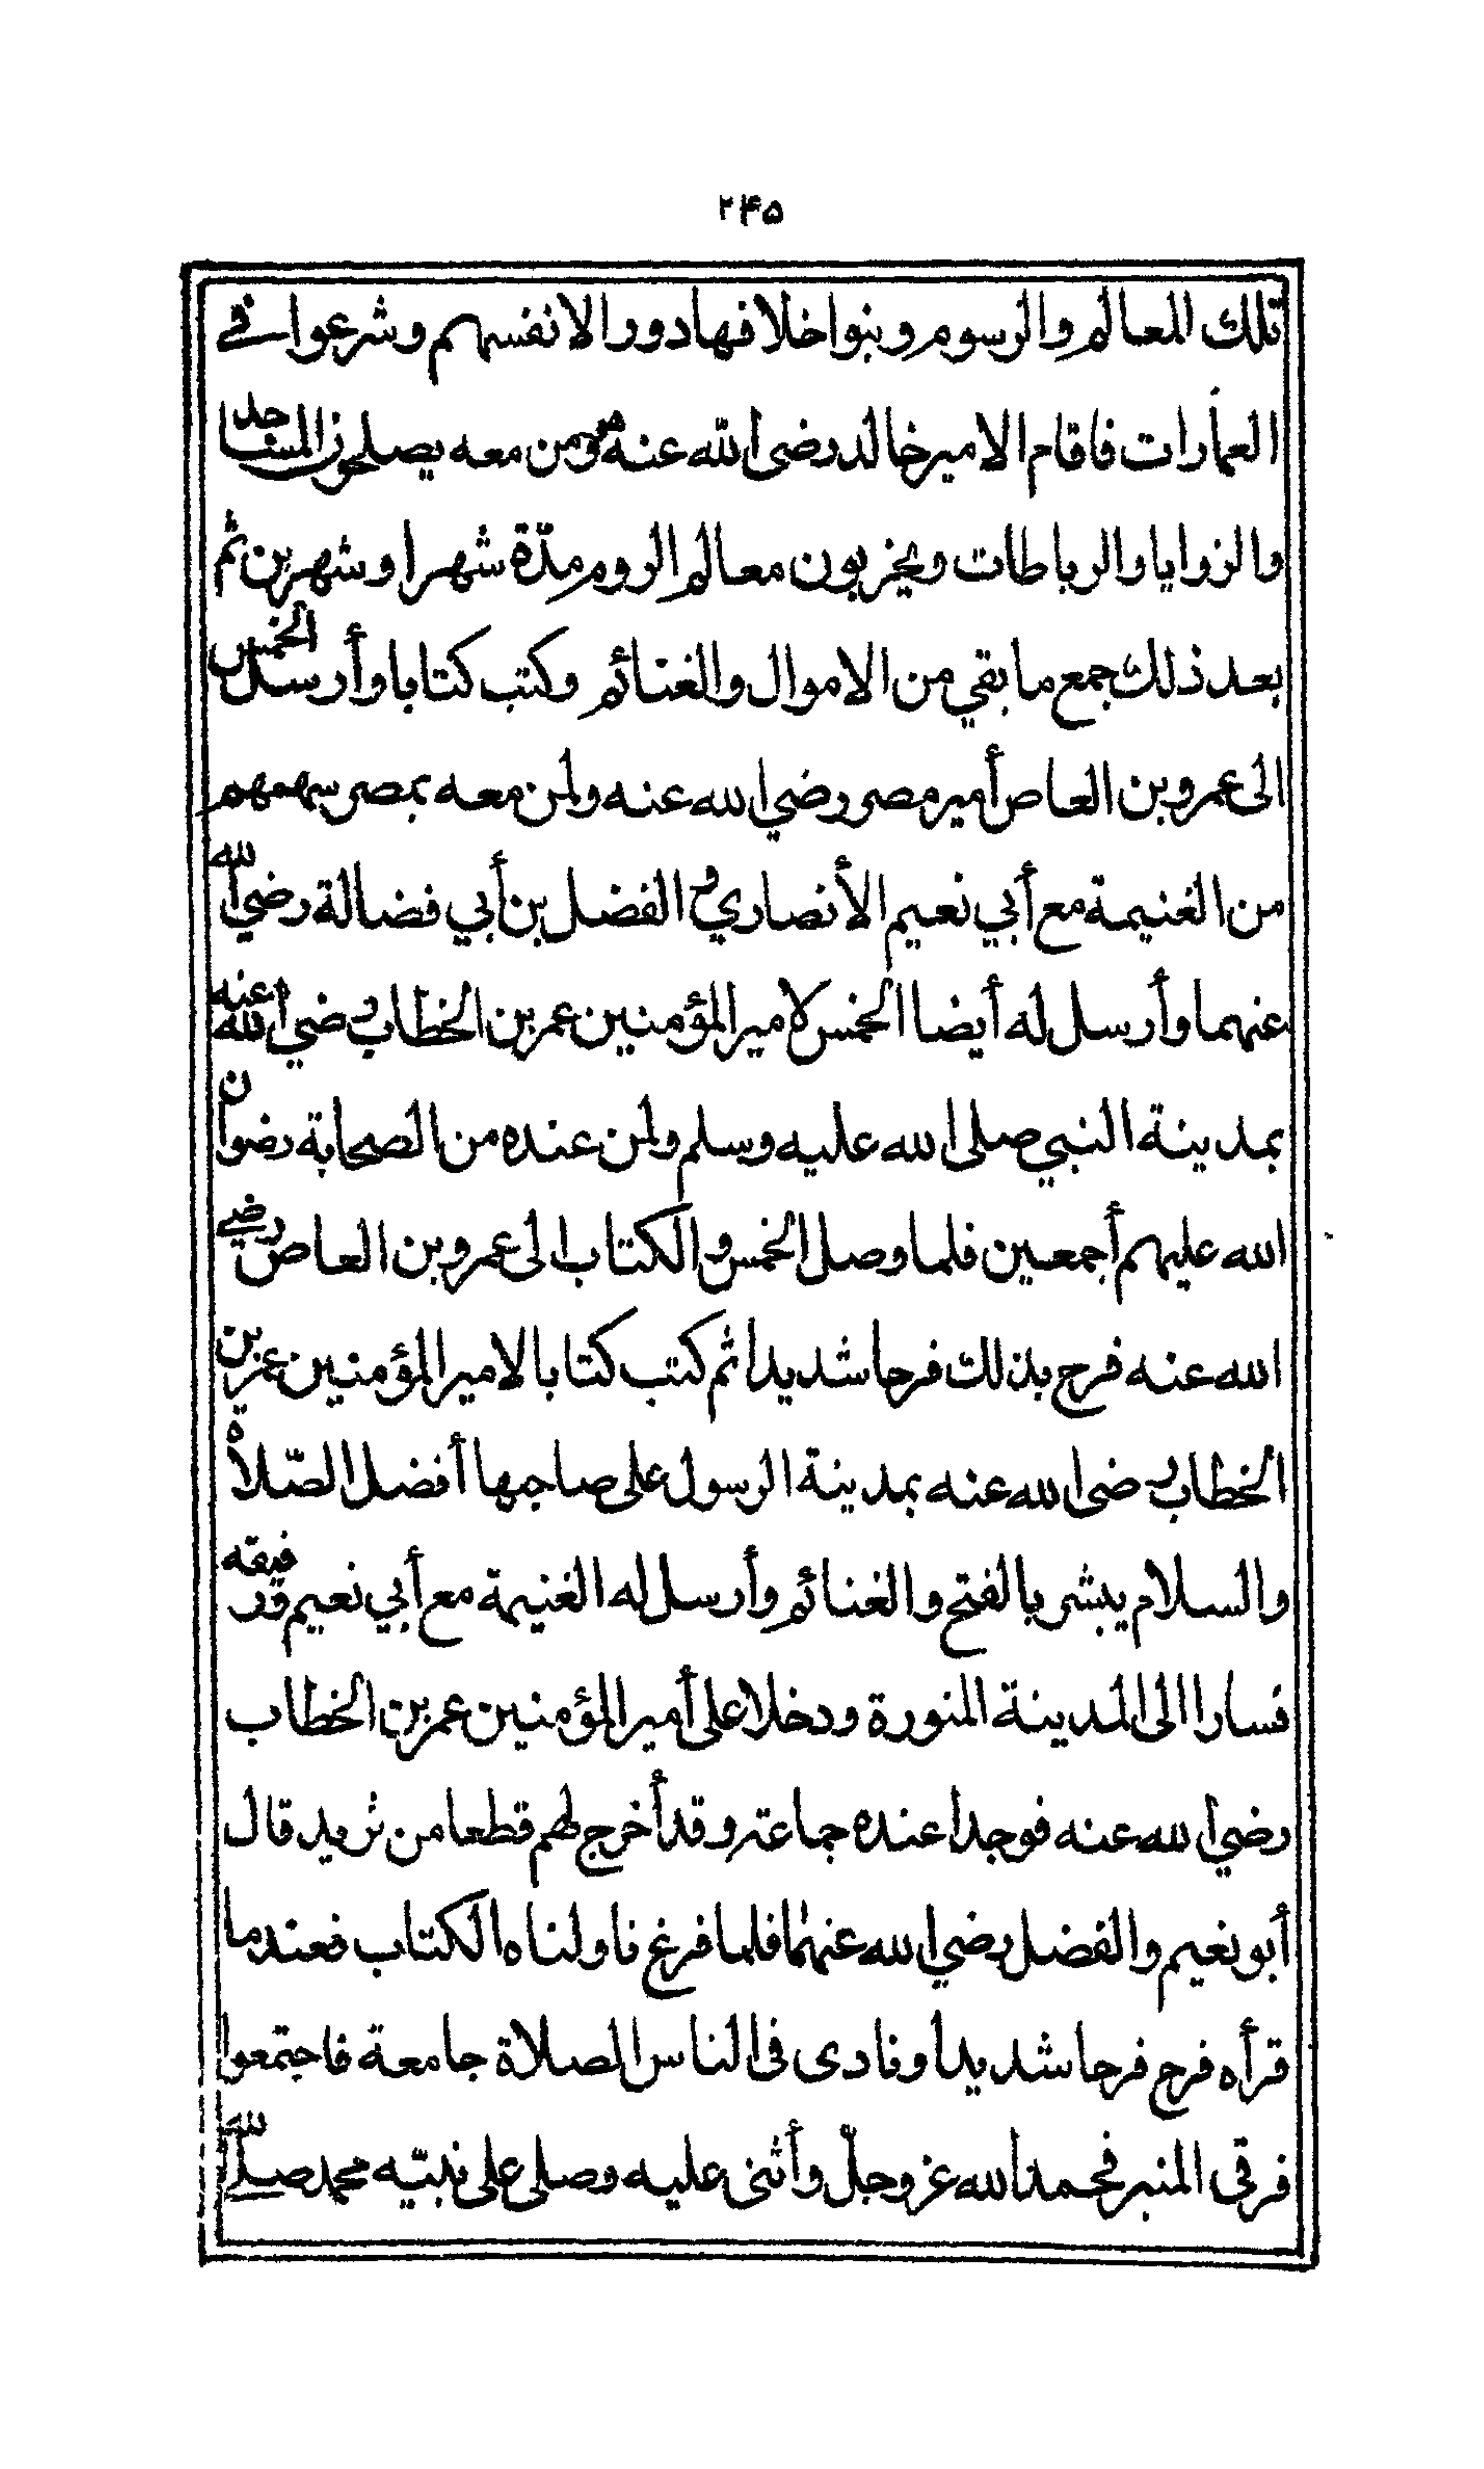 ۲۴۵
تلك المعالم والرسوم وبنوا خلافها دورا لانفسهم وشرعوا في
العمارات فاقام الامير خالد رضى الله عنه هو ومن معه يصلحون المساجد
والزوايا والرباطات ويخربون معالم الروم مدّة شهرا وشهرين ثم
بعد ذلك جمع ما بقي من الاموال والغنائم وكتب كتابا وأرسل الخمس
الى عمرو بن العاص أمير مصر رضي الله عنه ولمن معه بمصر سهمهم
من الغنيمة مع أبي نعيم الأنصاري و الفضل بن أبي فضالة رضي الله
عنهما وأرسل له أيضا الخمس لامير المؤمنين عمر بن الخطاب رضي الله عنه
بمدينة النبي صلى الله عليه وسلم ولمن عنده من الصحابة رضوان
الله عليهم أجمعين فلما وصل الخمس والكتاب الى عمرو بن العاص رضي
الله عنه فرح بذلك فرحا شديدا ثم كتب كتابا لامير المؤمنين عمر بن
الخطاب رضى الله عنه بمدينة الرسول على صاحبها أفضل الصّلاة
والسلام يبشر بالفتح والغنائم وأرسل له الغنيمة مع أبي نعيم ورفيقه
فسارا الى المدينة المنورة ودخلا على أمير المؤمنين عمر بن الخطاب
رضي الله عنه فوجدا عنده جماعة وقد أخرج لهم قطعا من ثريد قال
أبو نعيم والفضل رضي الله عنهما فلما فرغ ناولناه الكتاب فعندما
قرأه فرح فرحا شديدا ونادى فى الناس الصلاة جامعة فاجتمعوا
فرقى المنبر فحمد الله عز وجلّ وأثنى عليه وصلى على نبيّه محمد صلى الله